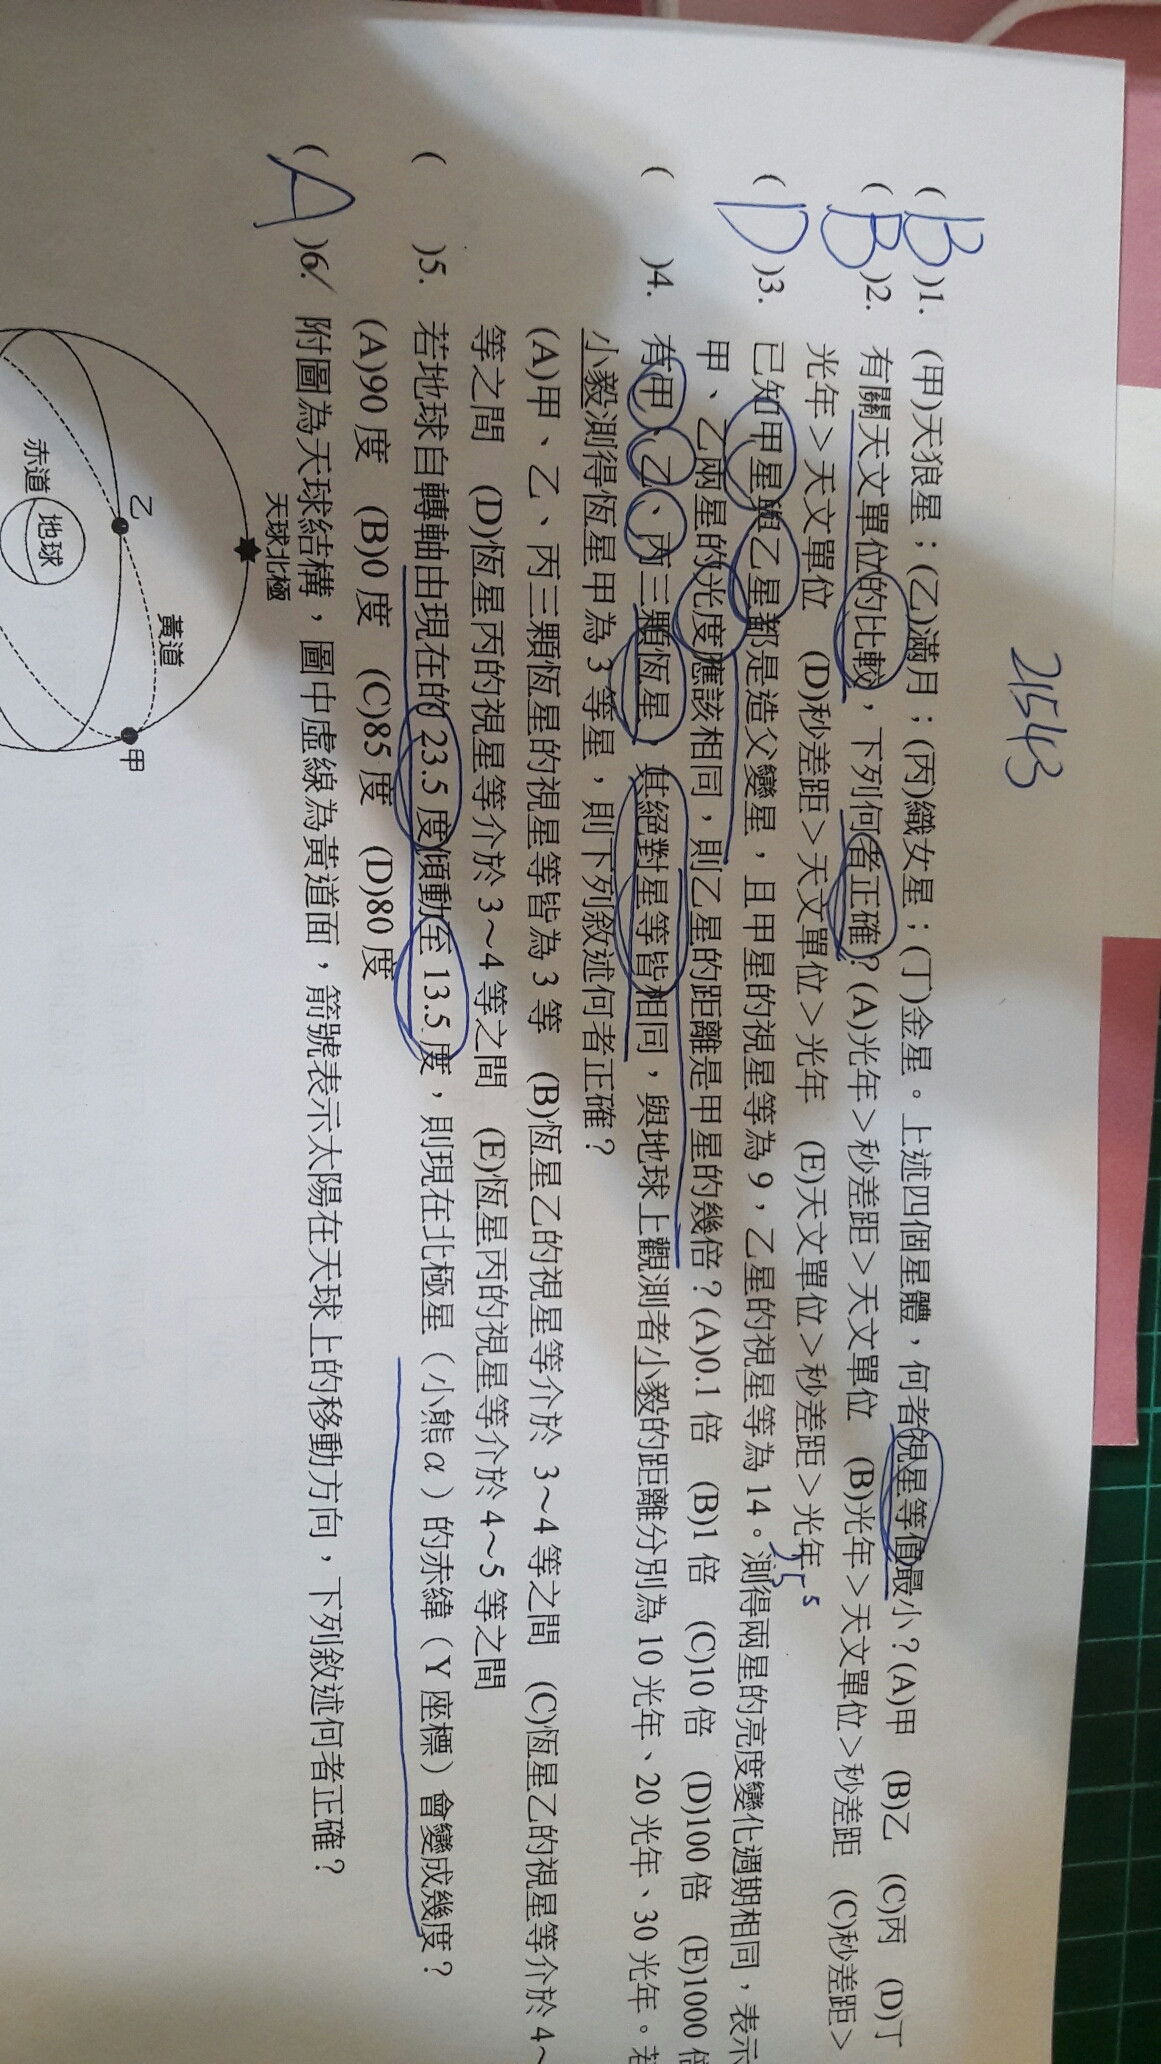 21543
(B)1. (甲)天狼星；(乙)滿月；(丙)織女星；(丁)金星。上述四個星體，何者視星等值最小？(A)甲 (B)乙 (C)丙 (D)丁
(B)2. 有關天文單位的比較，下列何者正確？(A)光年＞秒差距＞天文單位 (B)光年＞天文單位＞秒差距 (C)秒差距＞
光年＞天文單位 (D)秒差距＞天文單位＞光年 (E)天文單位＞秒差距＞光年
5
(D)3. 已知甲星跟乙星都是造父變星，且甲星的視星等為9，乙星的視星等為14。測得兩星的亮度變化週期相同，表示
甲、乙兩星的光度應該相同，則乙星的距離是甲星的幾倍？(A)0.1倍 (B)1倍 (C)10倍 (D)100倍 (E)1000倍
( )4. 有甲、乙、丙三顆恆星，其絕對星等皆相同，與地球上觀測者小毅的距離分別為10光年、20光年、30光年。若
小毅測得恆星甲為3等星，則下列敘述何者正確？
(A)甲、乙、丙三顆恆星的視星等皆為3等 (B)恆星乙的視星等介於 3～4等之間 (C)恆星乙的視星等介於4～
等之間 (D)恆星丙的視星等介於3～4等之間 (E)恆星丙的視星等介於4～5等之間
( )5. 若地球自轉軸由現在的23.5度傾動至13.5度，則現在北極星（小熊α）的赤緯（Y座標）會變成幾度？
(A)90度 (B)0度 (C)85度 (D)80度
(A)6. 附圖為天球結構，圖中虛線為黃道面，箭號表示太陽在天球上的移動方向，下列敘述何者正確？
天球北極
黃道
乙
甲
赤道
地球